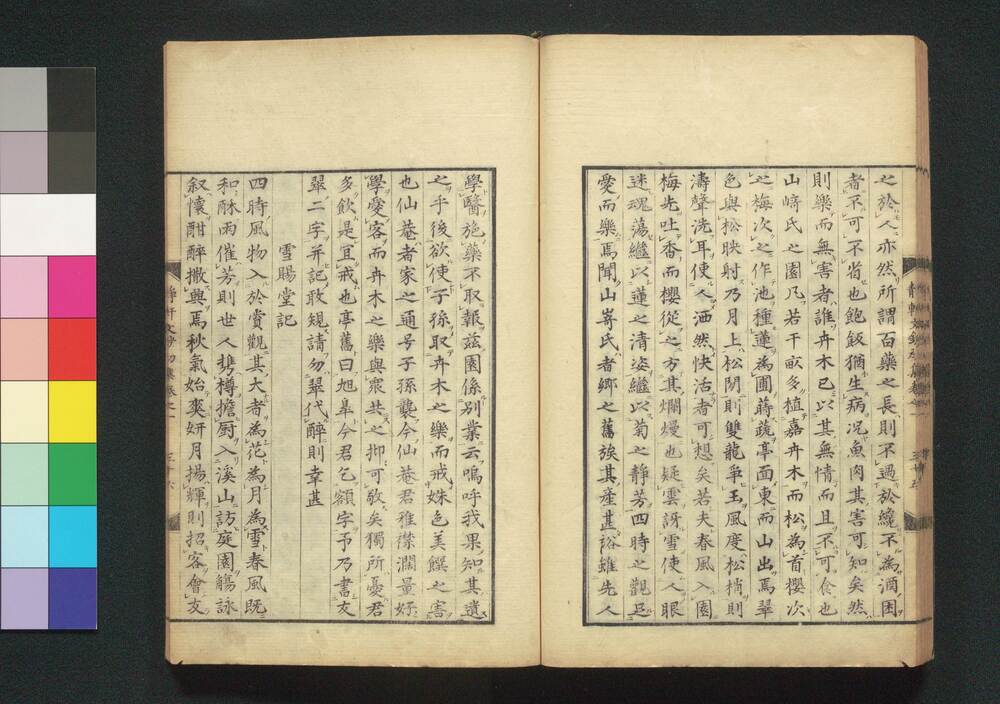 之於人亦然所謂百藥之長則不過於纔不為酒困
者不可不省也飽飲猶生病况魚肉其害可知矣然
則樂而無害者誰卉木已以其無情而且不可食也
山﨑氏之園凡若干畝多植嘉卉木而松為首櫻次
之梅次之作池種蓮為圃蒔蔬亭面東而山出焉翠
色與松映射乃月上松閒則雙龍爭玉風度松梢則
濤聲洗耳使人洒然快活者可想矣若夫春風入園
梅先吐香而櫻從之方其爛熳也疑雲訝雪使人眼
迷魂蕩繼以蓮之清姿繼以菊之靜芳四時之觀足
愛而樂焉聞山嵜氏者鄉之舊族其產甚豁雖先人
學醫施藥不取報茲園係別業云嗚呼我果知其遺
之乎後欲使子孫取卉木之樂而戒姝色美饌之害
也仙菴者家之通号子孫襲今仙菴君雅襟濶量好
學愛客而卉木之樂與眾共之抑可敬矣獨所憂君
多飲是宜戒也亭舊曰旭皐今君乞額字予乃書友
翠二字并記敢規請勿翠代醉則幸甚
雪賜堂記
四時風物入於賞觀其大者為花為月為雪春風既
和酥雨催芳則世人携樽擔厨入溪山訪庭園觴詠
叙懷酣醉撒興焉秋氣始爽妍月揚輝則招客會友